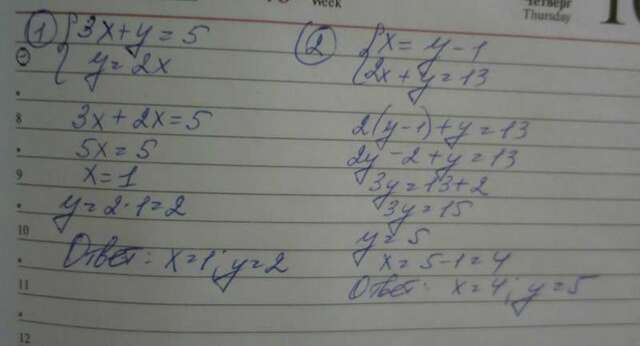 Week
Четверг
Thursday
1 3x+y=5
y=2x
3x+2x=5
5x=5
x=1
y=2·1=2
Ответ: x=1; y=2
2 x=y-1
2x+y=13
2(y-1)+y=13
2y-2+y=13
3y=13+2
3y=15
y=5
x=5-1=4
Ответ: x=4; y=5
8
9
10
11
12